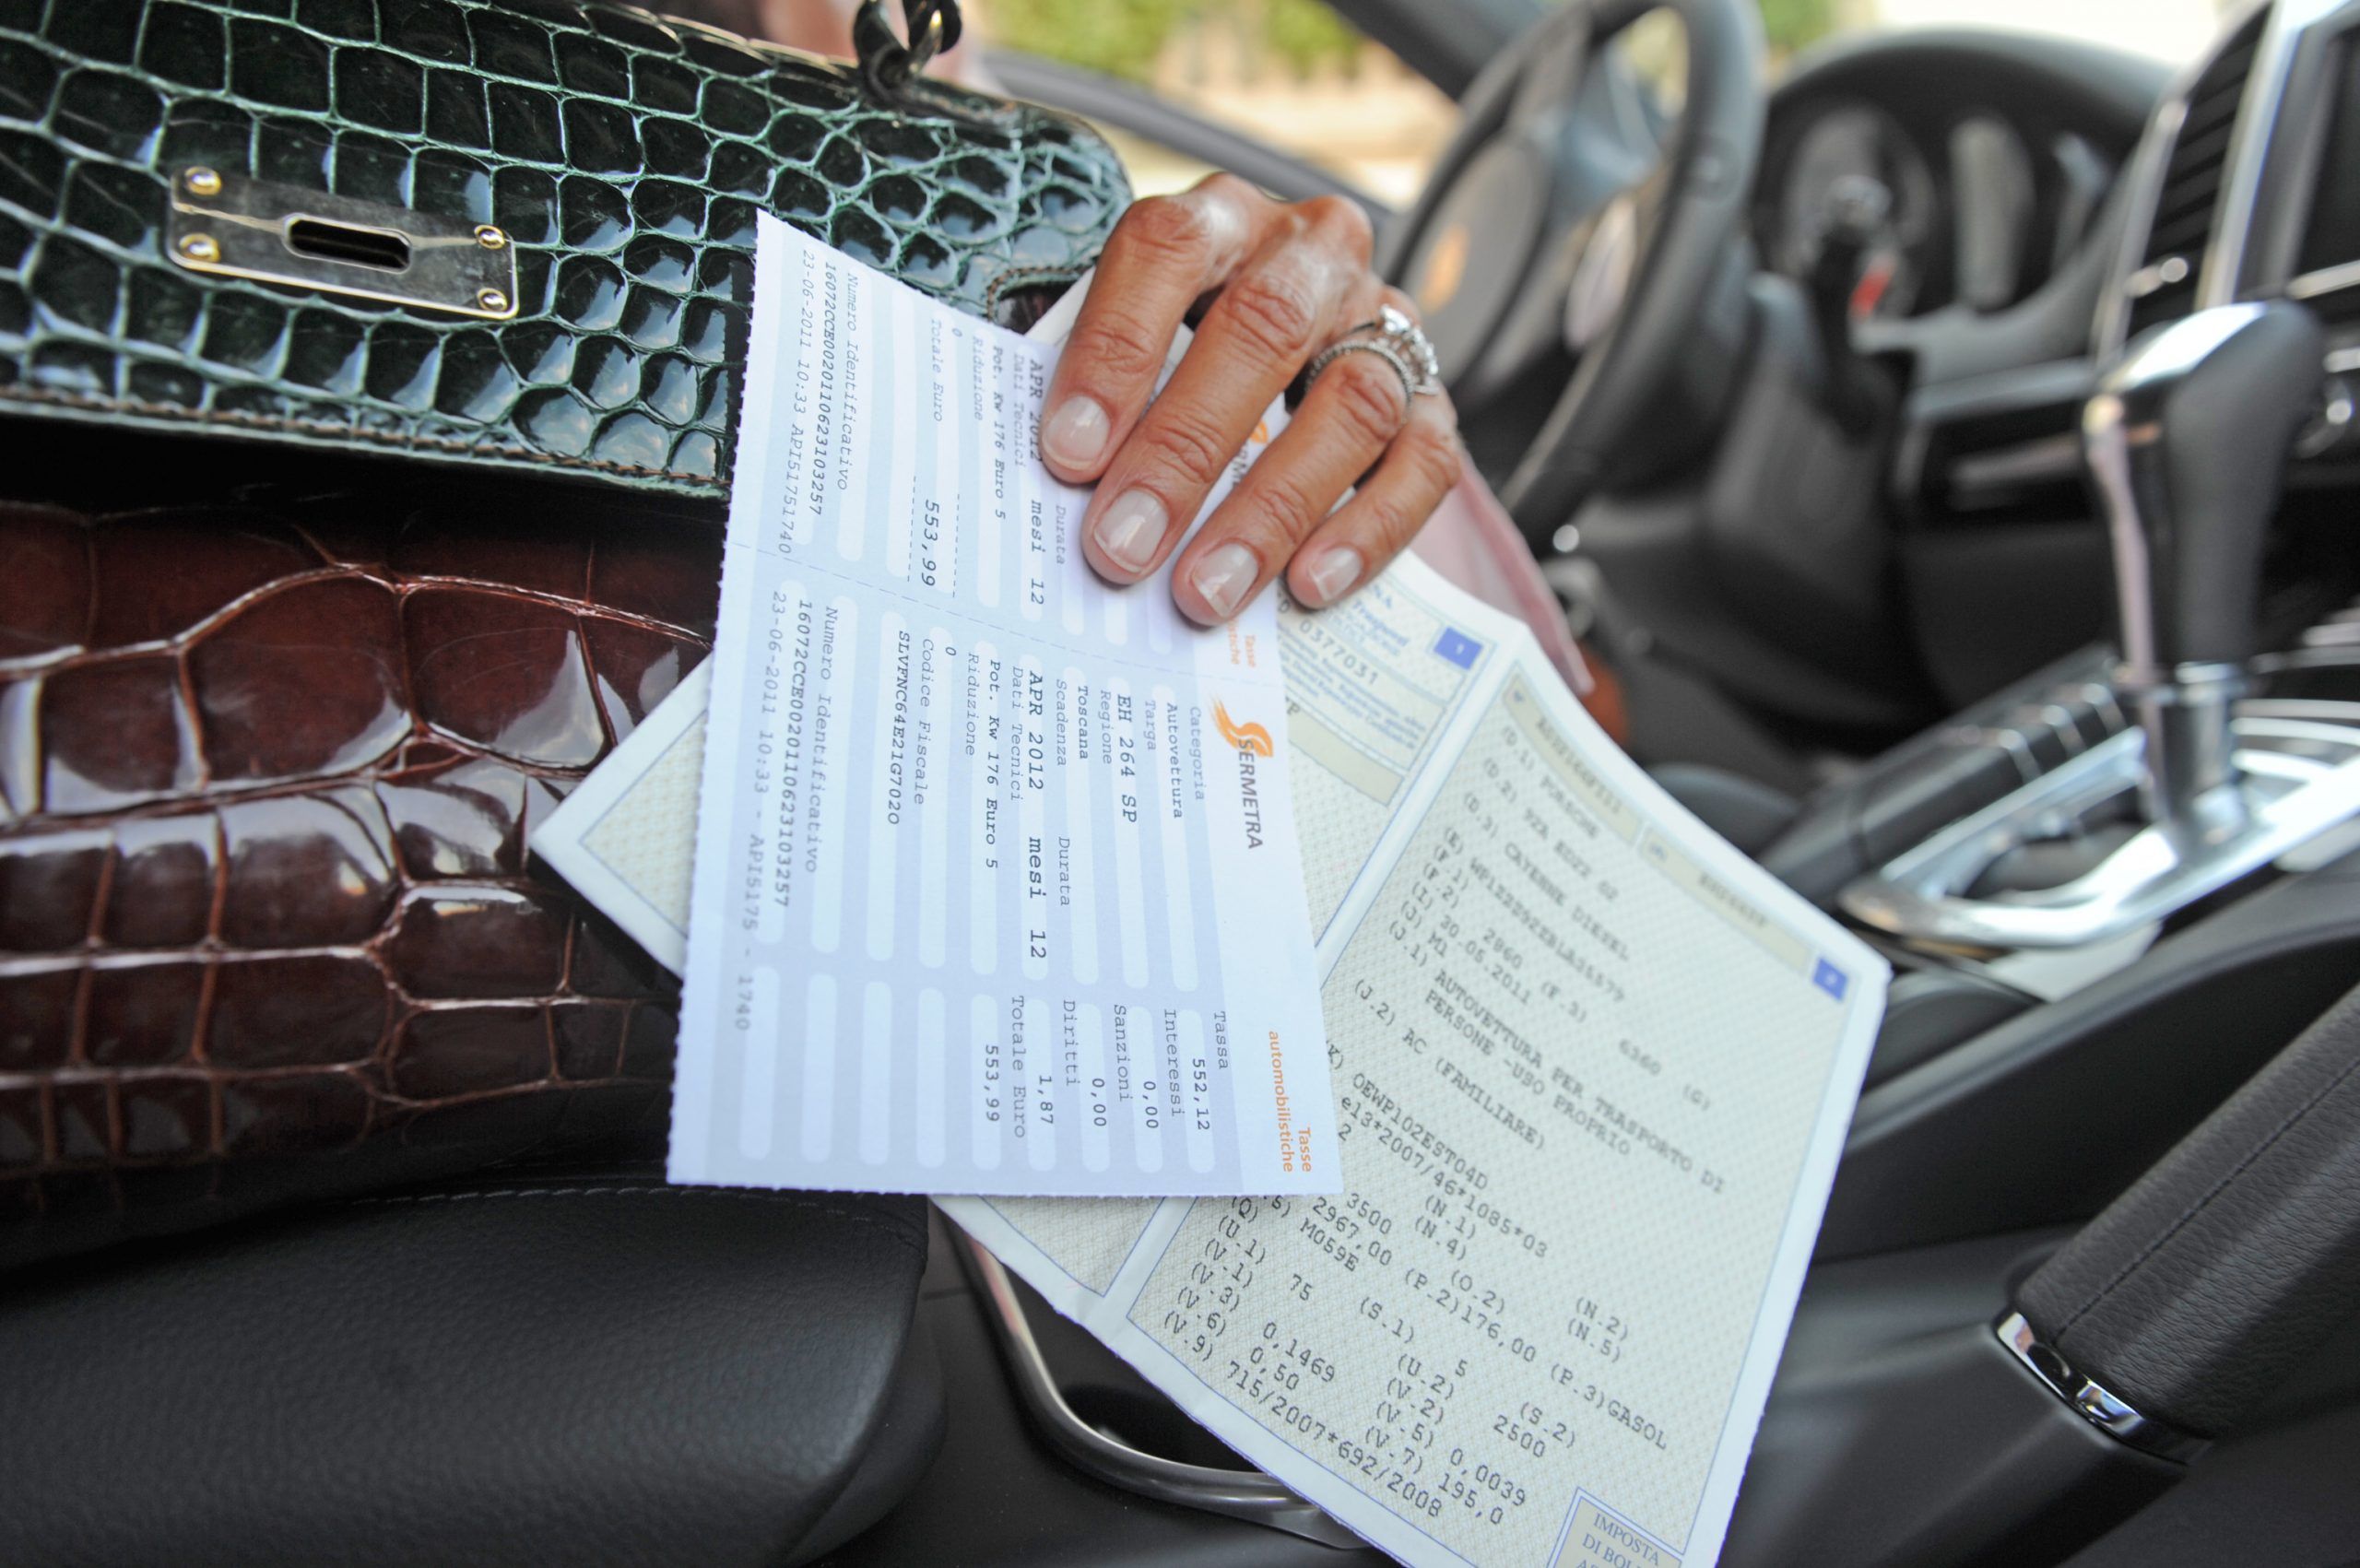 Numero Identificativo
16072CCE0020110623103257
23-06-2011 10:33 API51751740
Totale Euro
553,99
Riduzione
0
Pot. Kw 176 Euro 5
Dati Tecnici
APR 2012 mesi 12
Durata
SERMETRA
Tasse
automobilistiche
Categoria
Autovettura
Targa
EH 264 SP
Regione
Toscana
Scadenza Durata
APR 2012 mesi 12
Dati Tecnici
Pot. Kw 176 Euro 5
Riduzione
0
Codice Fiscale
SLVFNC64E21G702O
Numero Identificativo
16072CCE0020110623103257
23-06-2011 10:33 - API5175 - 1740
Tassa
552,12
Interessi
0,00
Sanzioni
0,00
Diritti
1,87
Totale Euro
553,99
0377031
(D.1) PORSCHE
(D.2) 92A
(D.3) CAYENNE DIESEL
(E)
(F.1)
(F.2) 2860 (F.3) 6360 (G)
(I) 30.05.2011
(J) M1
(J.1) AUTOVETTURA PER TRASPORTO DI
PERSONE -USO PROPRIO
(J.2) AC (FAMILIARE)
OEWP102EST04D
e13*2007/46*1085*03
2 (N.1) (N.2)
3500 (N.4) (N.5)
2967,00 (O.2)
M059E (P.2)176,00 (P.3)GASOL
(Q) (S.1) 5 (S.2)
(U.1) 75 (U.2) 2500
(V.1) (V.2)
(V.3) 0,1469 (V.5) 0,0039
(V.6) 0,50 (V.7) 195,0
(V.9) 715/2007*692/2008
IMPOSTA